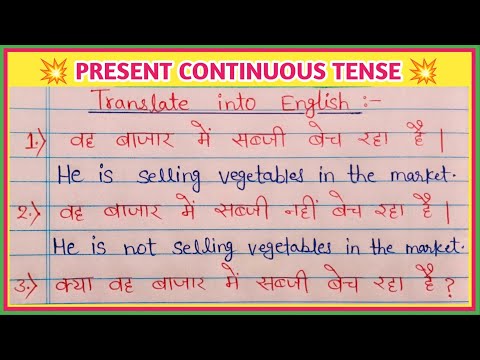 💥 PRESENT CONTINUOUS TENSE 💥
Translate into English :-
1.) वह बाजार में सब्जी बेच रहा है |
He is selling vegetables in the market.
2.) वह बाजार में सब्जी नहीं बेच रहा है |
He is not selling vegetables in the market.
3.) क्या वह बाजार में सब्जी बेच रहा है ?